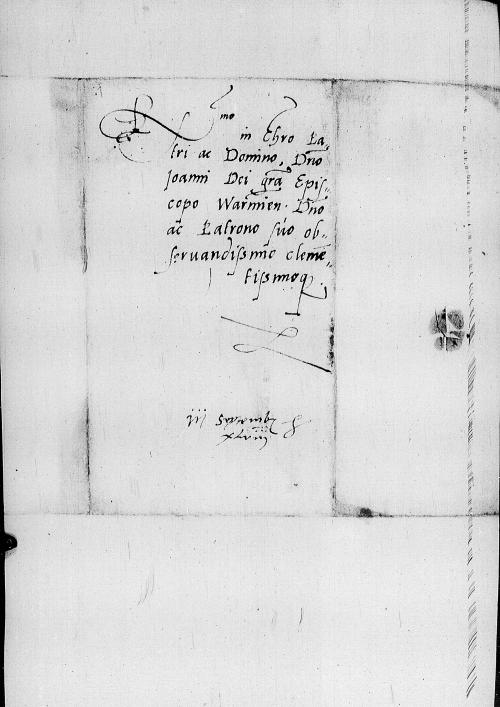 R<sup>mo</sup>
in Chro Pa-
tri ac Domino, Dno
Joanni Dei grã Epis-
copo Warmien. Dno
ac Patrono suo ob-
servandissimo cleme-
tissimoq
iij
xlviij